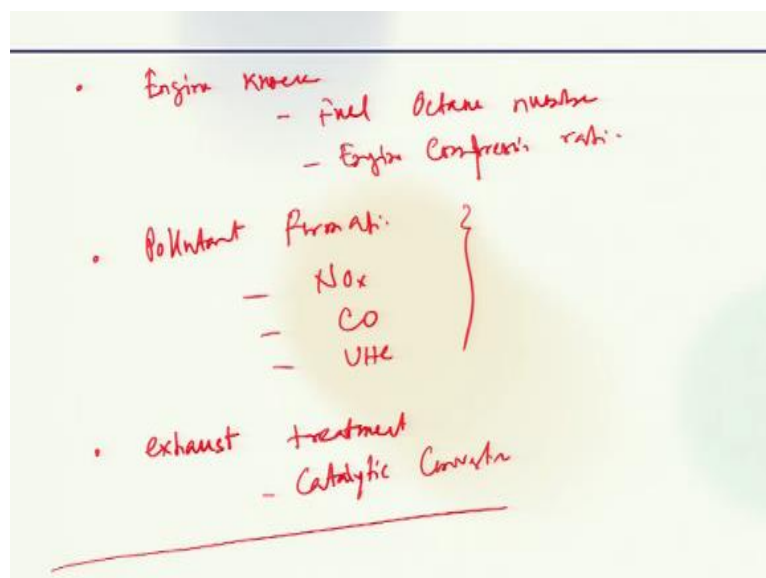 • Engine Knock
- Fuel Octane number
- Engine Compression ratio
• Pollutant formation
- NOx
- CO
- UHC
• exhaust treatment
- Catalytic Converter